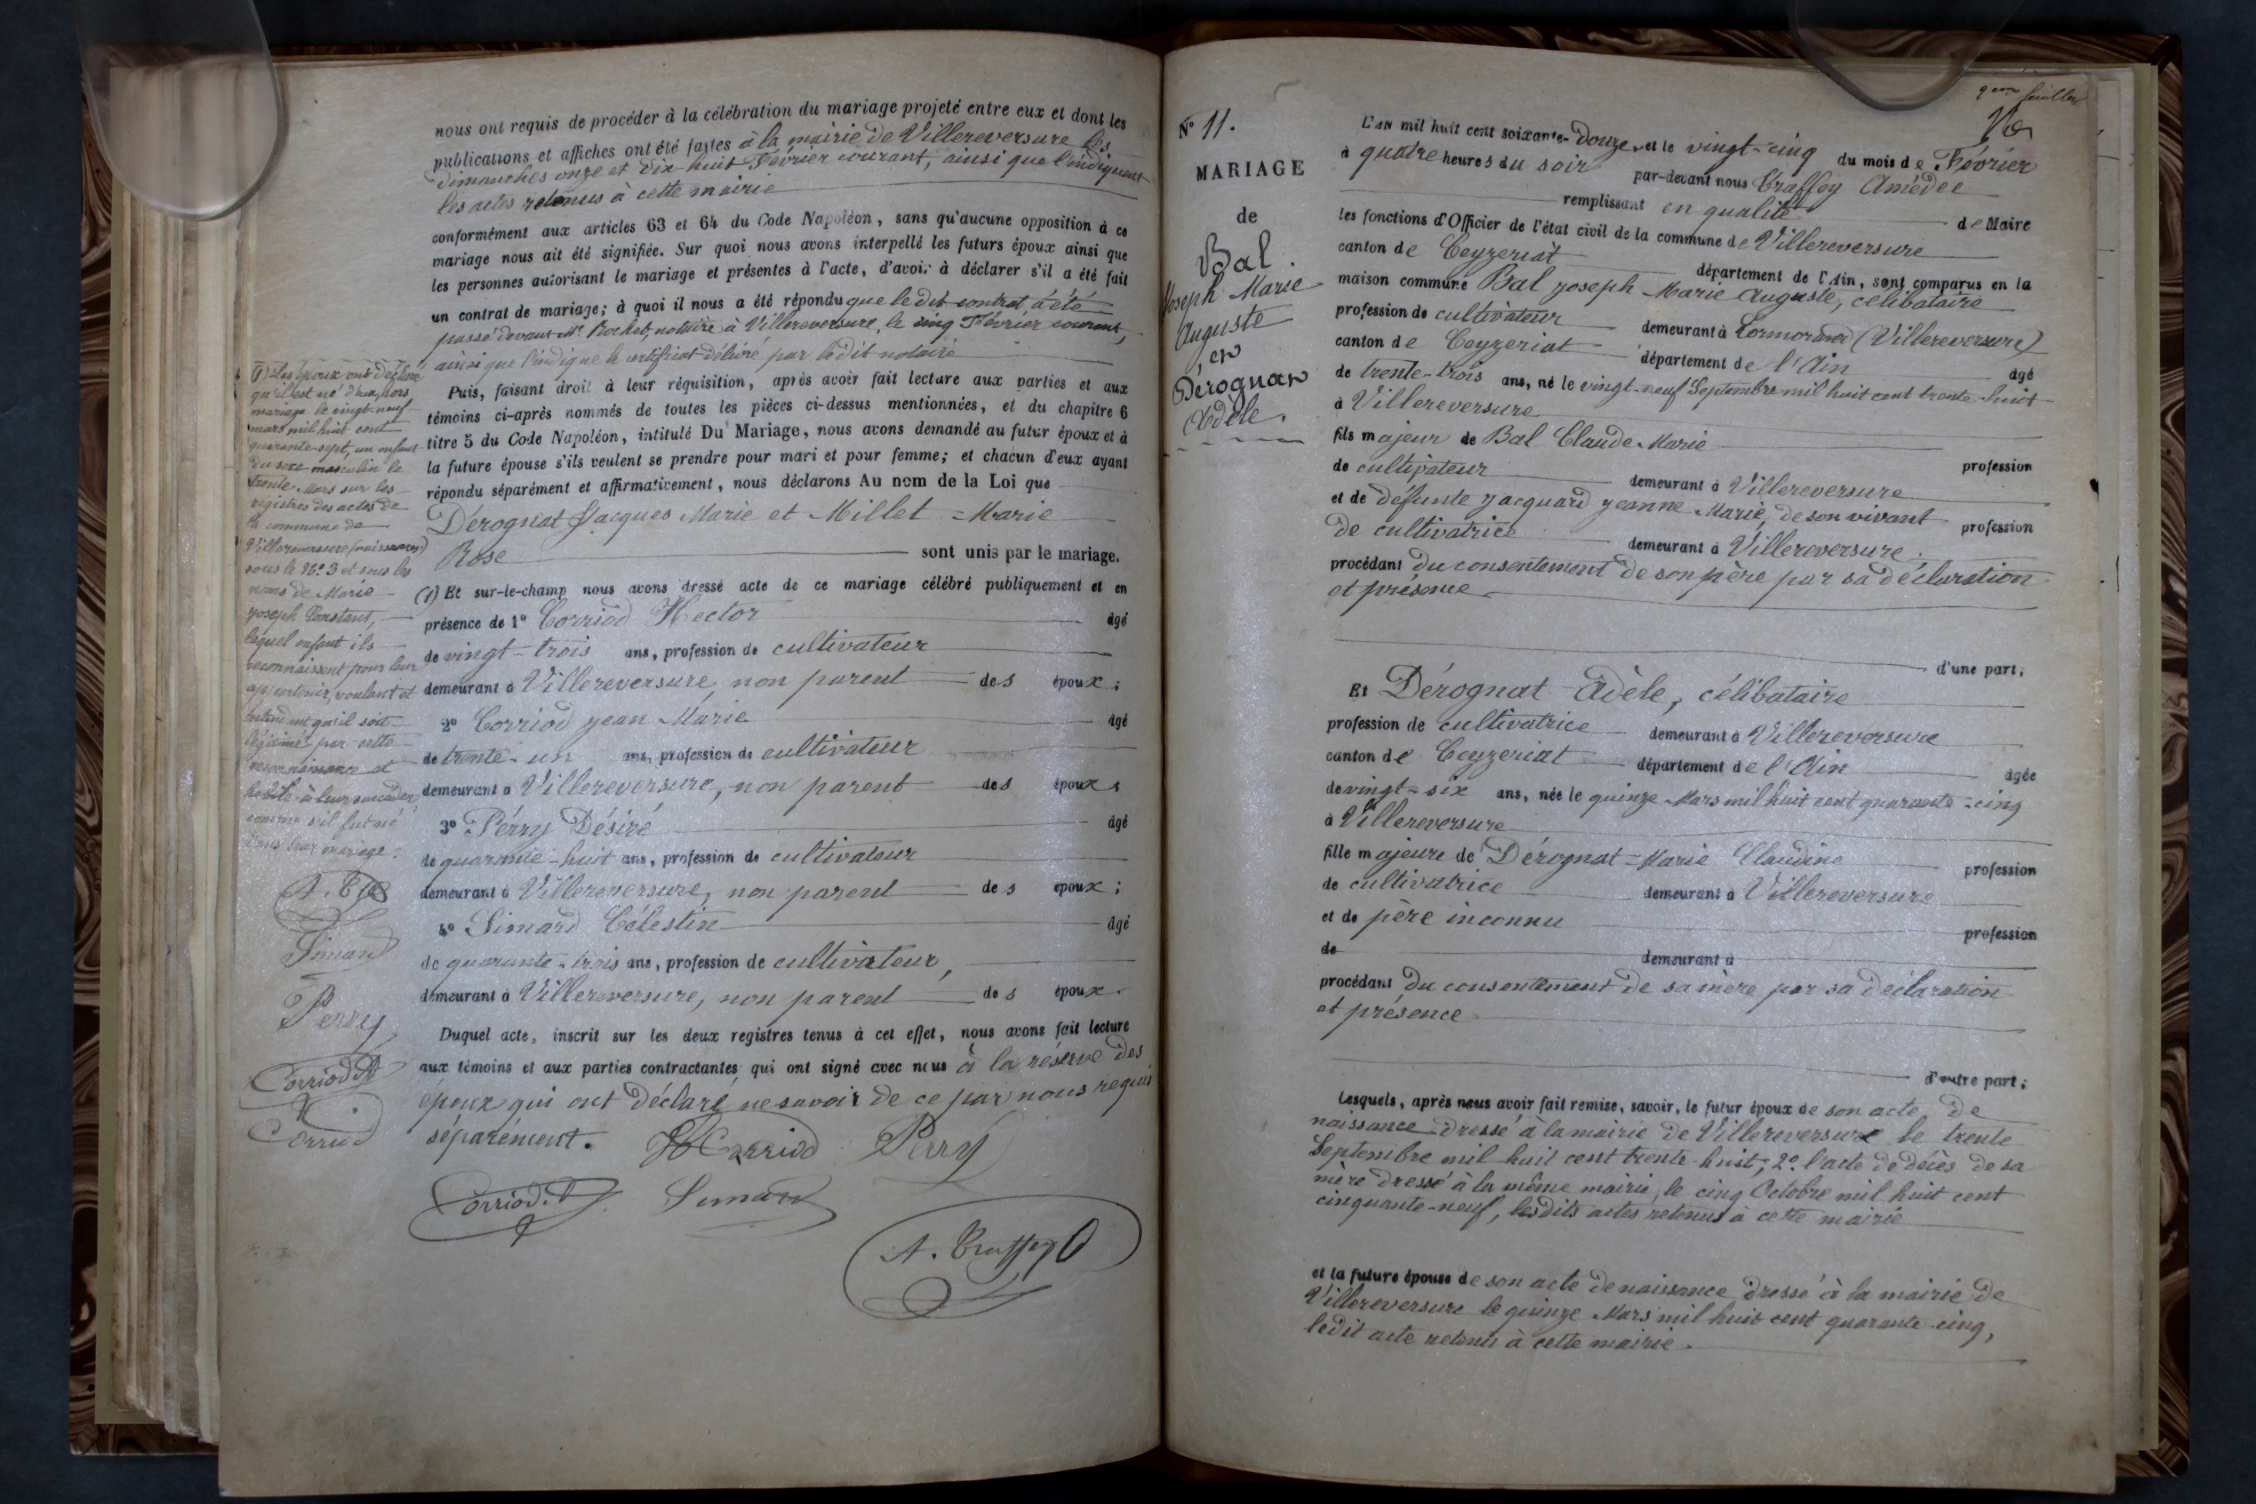 nous ont requis de procéder à la célébration du mariage projeté entre eux et dont les
publications et affiches ont été faites à la mairie de Villereversure les
dimanches onze et dix-huit Février courant, ainsi que l'indiquent
les actes retenus à cette mairie
conformément aux articles 63 et 64 du Code Napoléon, sans qu'aucune opposition à ce
mariage nous ait été signifiée. Sur quoi nous avons interpellé les futurs époux ainsi que
les personnes autorisant le mariage et présentes à l'acte, d'avoir à déclarer s'il a été fait
un contrat de mariage; à quoi il nous a été répondu que le dit contrat a été
passé devant Me Rochet, notaire à Villereversure, le cinq Février courant,
ainsi que l'indique le certificat délivré par le dit notaire
Puis, faisant droit à leur réquisition, après avoir fait lecture aux parties et aux
témoins ci-après nommés de toutes les pièces ci-dessus mentionnées, et du chapitre 6
titre 5 du Code Napoléon, intitulé Du Mariage, nous avons demandé au futur époux et à
la future épouse s'ils veulent se prendre pour mari et pour femme; et chacun d'eux ayant
répondu séparément et affirmativement, nous déclarons Au nom de la Loi que
Dérognat Jacques Marie et Millet Marie
Rose sont unis par le mariage.
(1) Et sur-le-champ nous avons dressé acte de ce mariage célébré publiquement et en
présence de 1° Corriod Hector âgé
de vingt-trois ans, profession de cultivateur
demeurant à Villereversure, non parent des époux;
2° Corriod Jean Marie âgé
de trente-un ans, profession de cultivateur
demeurant à Villereversure, non parent des époux,
3° Perry Désiré âgé
de quarante-huit ans, profession de cultivateur
demeurant à Villereversure, non parent des époux;
4° Simard Célestin âgé
de quarante-trois ans, profession de cultivateur,
demeurant à Villereversure, non parent des époux.
Duquel acte, inscrit sur les deux registres tenus à cet effet, nous avons fait lecture
aux témoins et aux parties contractantes qui ont signé avec nous à la réserve des
époux qui ont déclaré ne savoir de ce par nous requis
séparément. H Corriod Perry
Corriod Simard
A. Traffey
(1) Les époux ont déclaré
qu'il est né d'eux, hors
mariage le vingt-neuf
mars mil huit cent
quarante-sept, un enfant
du sexe masculin le
trente Mars sur les
registres des actes de
la commune de
Villereversure (naissances)
sous le No 3 et sous les
noms de Marie
Joseph Constant,
lequel enfant ils
reconnaissent pour leur
appartenir, voulant et
entendant qu'il soit
légitimé par cette
reconnaissance et
habile à leur succéder
comme s'il fut né
dans leur mariage.
Simard
Perry
Corriod
H.
Corriod
9eme feuillet
N° 11.
MARIAGE
de
Bal
Joseph Marie
Auguste
et
Dérognat
Adèle.
L'an mil huit cent soixante-douze, et le vingt-cinq du mois de Février
à quatre heures du soir par-devant nous Traffey Amédée
remplissant en qualité de Maire
les fonctions d'Officier de l'état civil de la commune de Villereversure
canton de Ceyzeriat département de l'Ain, sont comparus en la
maison commune Bal Joseph Marie Auguste, célibataire
profession de cultivateur demeurant à Cormorand (Villereversure)
canton de Ceyzeriat département de l'Ain âgé
de trente-trois ans, né le vingt-neuf Septembre mil huit cent trente-huit
à Villereversure
fils majeur de Bal Claude Marie profession
de cultivateur demeurant à Villereversure
et de deffunte Jacquard Jeanne Marie, de son vivant profession
de cultivatrice demeurant à Villereversure.
procédant du consentement de son père par sa déclaration
et présence
d'une part;
Et Dérognat Adèle, célibataire
profession de cultivatrice demeurant à Villereversure
canton de Ceyzeriat département de l'Ain âgée
de vingt-six ans, née le quinze Mars mil huit cent quarante-cinq
à Villereversure
fille majeure de Dérognat Marie Claudine profession
de cultivatrice demeurant à Villereversure
et de père inconnu profession
de demeurant à
procédant du consentement de sa mère par sa déclaration
et présence
d'autre part;
Lesquels, après nous avoir fait remise, savoir, le futur époux de son acte de
naissance dressé à la mairie de Villereversure le trente
Septembre mil huit cent trente-huit; 2° l'acte de décès de sa
mère dressé à la même mairie, le cinq Octobre mil huit cent
cinquante-neuf, lesdits actes retenus à cette mairie
et la future épouse de son acte de naissance dressé à la mairie de
Villereversure le quinze Mars mil huit cent quarante-cinq,
ledit acte retenu à cette mairie.